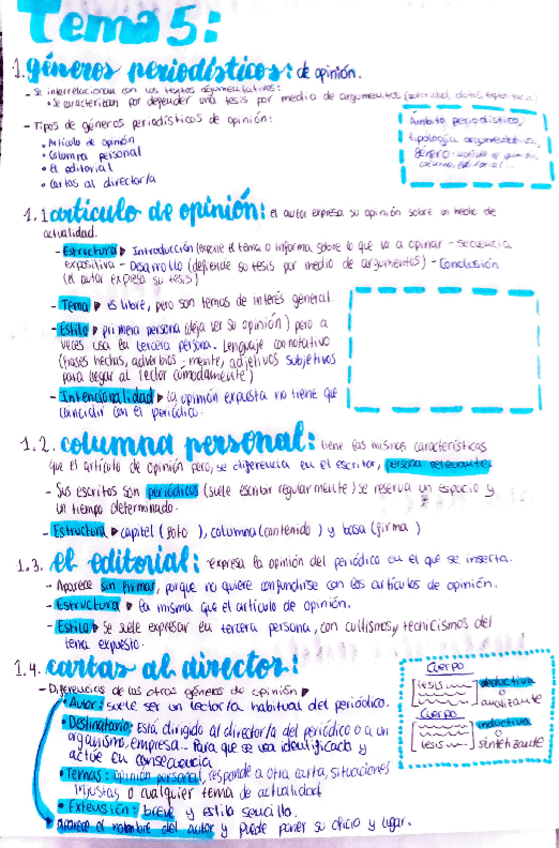 Tema 5:
1. géneros periodísticos: de opinión.
- Se interrelacionan con los textos argumentativos:
• Se caracterizan por defender una tesis por medio de argumentos (autoridad, datos,
- Tipos de géneros periodísticos de opinión:
• Artículo de opinión
• Columna personal
• El editorial
• Cartas al director/a
Ámbito periodístico,
tipología argumentativa,
género: artículo de opinión,
columna, editorial...
1.1 artículo de opinión: el autor expresa su opinión sobre un hecho de
actualidad.
- Estructura ▶ Introducción (expone el tema o informa sobre lo que va a opinar - secuencia
expositiva - Desarrollo (defiende su tesis por medio de argumentos) - Conclusión
(el autor expresa su tesis)
- Tema ▶ es libre, pero son temas de interés general.
- Estilo ▶ primera persona (deja ver su opinión) pero a
veces usa la tercera persona. Lenguaje connotativo
(frases hechas, adverbios -mente, adjetivos subjetivos
para llegar al lector cómodamente)
- Intencionalidad ▶ La opinión expuesta no tiene que
coincidir con el periódico.
1.2. columna personal: tiene las mismas características
que el artículo de opinión pero, se diferencia en el escritor, persona relevante.
- Sus escritos son periódicos (suele escribir regularmente) se reserva un espacio y
un tiempo determinado.
- Estructura ▶ capitel (foto ), columna (contenido ) y basa (firma )
1.3. el editorial: expresa la opinión del periódico en el que se inserta.
- Aparece sin firmar, porque no quiere confundirse con los artículos de opinión.
- Estructura ▶ la misma que el artículo de opinión.
- Estilo ▶ Se suele expresar en tercera persona, con cultismos y tecnicismos del
tema expuesto.
1.4. cartas al director:
- Diferencias de los otros géneros de opinión ▶
• Autor: suele ser un lector/a habitual del periódico.
• Destinatario: Está dirigido al director/a del periódico o a un
organismo, empresa... Para que se vea identificado y
actúe en consecuencia
• Temas: opinión personal, responde a otra carta, situaciones
injustas o cualquier tema de actualidad
• Extensión: breve y estilo sencillo.
• Aparece el nombre del autor y puede poner su oficio y lugar.
Cuerpo
tesis
deductiva
o
analizante
Cuerpo
tesis
inductiva
o
sintetizante